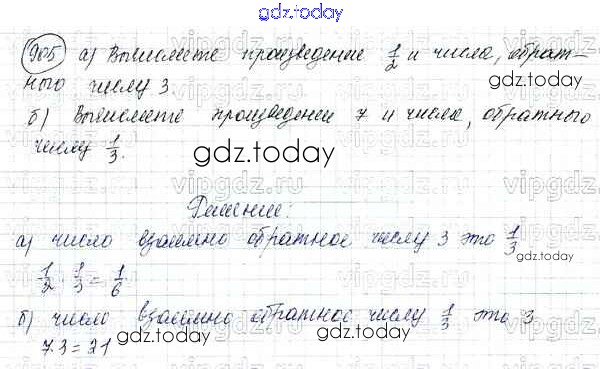 gdz.today
905 а) Вычислите произведение 1/2 и числа, обрат-
ного числу 3 gdz.today
б) Вычислите произведении 7 и числа, обратного
числу 1/3. gdz.today
vipgdz.ru
Решение:
а) число взаимно обратное числу 3 это 1/3
gdz.today
1/2 · 1/3 = 1/6
б) число взаимно обратное числу 1/3 это 3
gdz.today gdz.today
7·3=21
vipgdz.ru